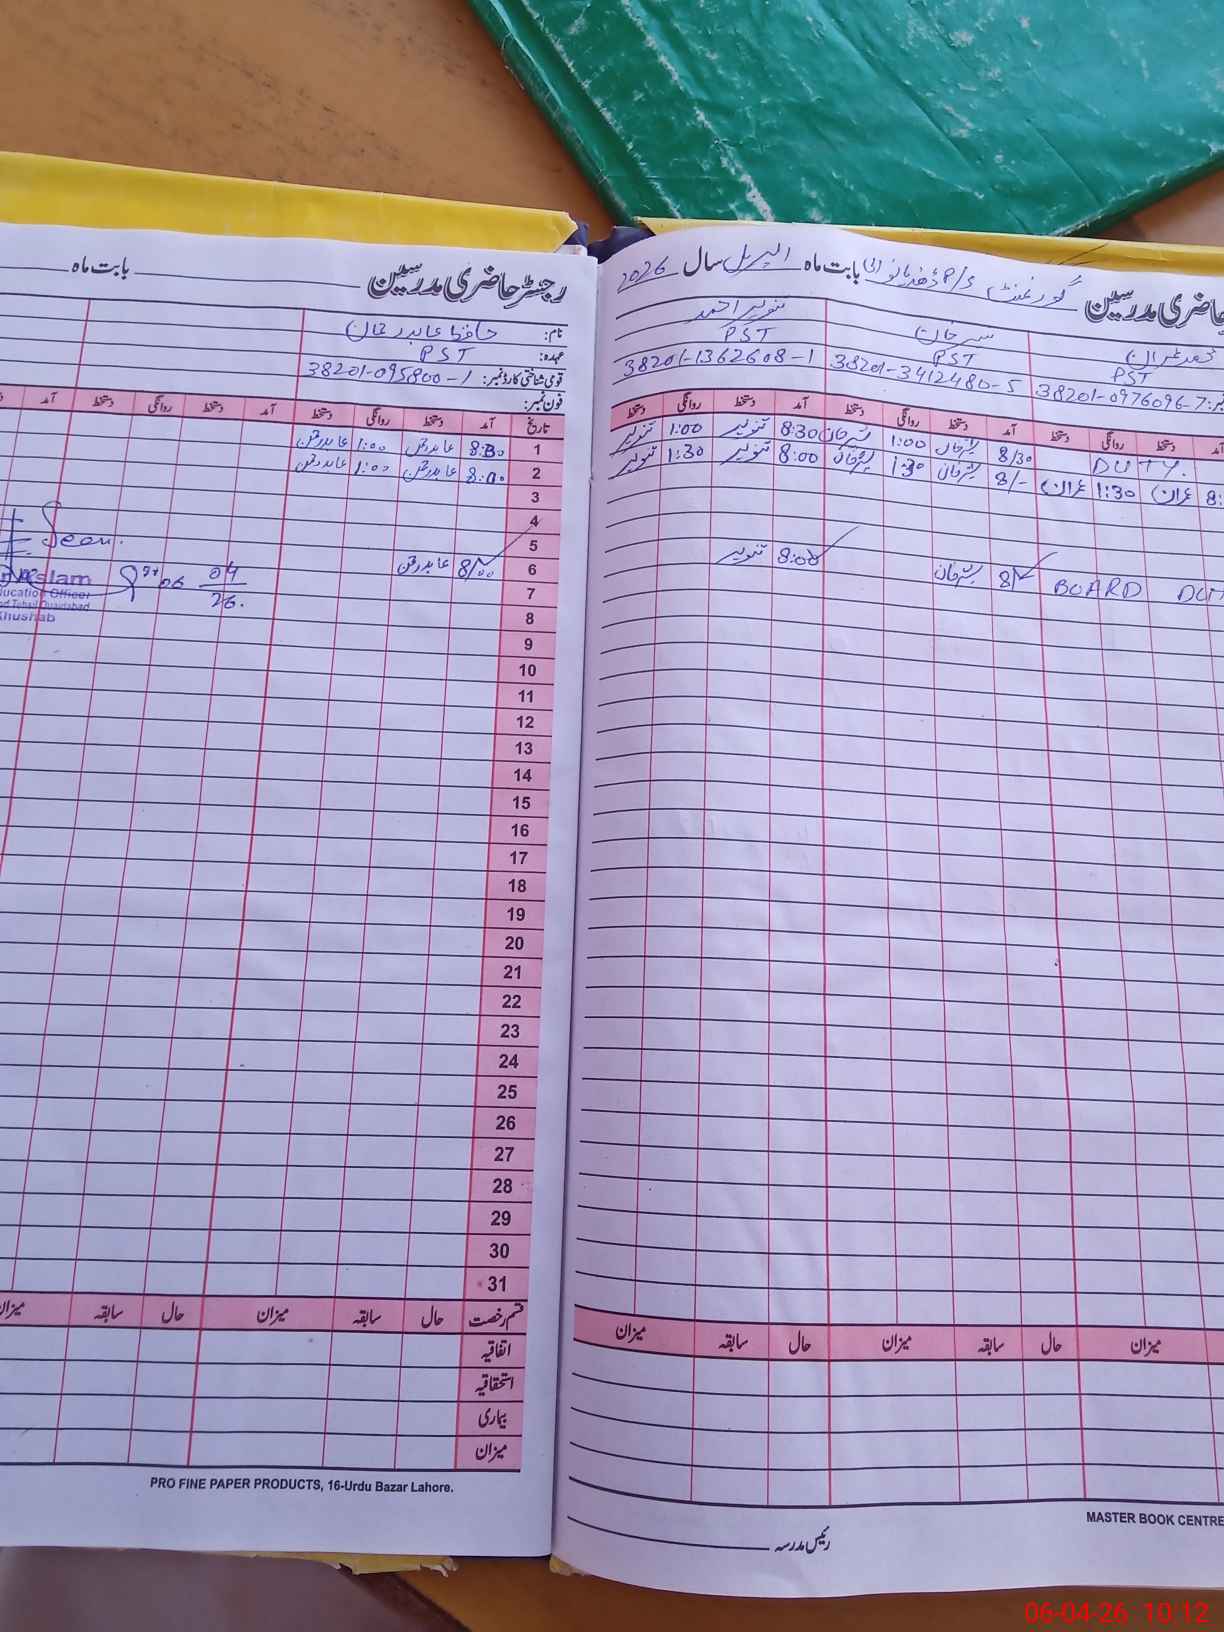 رجسٹر حاضری مدرسین ــــ بابت ماہ
نام: حافظ عابد رحمان
عہدہ: PST
قومی شناختی کارڈ نمبر:
فون نمبر:
تاریخ آمد دستخط روانگی دستخط آمد دستخط روانگی دستخط آمد
1 8:30 1:00
2 8:00 1:00
3
4
5
6 8/00
7
8
9
10
11
12
13
14
15
16
17
18
19
20
21
22
23
24
25
26
27
28
29
30
31
Seen.
06 04
26.
Aslam
Education Officer
Khushab
قسم رخصت حال سابقہ میزان حال سابقہ میزان
اتفاقیہ
استحقاقیہ
بیماری
میزان
PRO FINE PAPER PRODUCTS, 16-Urdu Bazar Lahore.
حاضری مدرسین گورنمنٹ P/S بابت ماہ اپریل سال 2026
تنویر احمد
PST PST PST
38201-0976096-7 38201-3412480-5 38201-1362608-1
آمد دستخط روانگی دستخط آمد دستخط روانگی دستخط آمد دستخط روانگی دستخط
DUTY. 8/30 1:00 8:30 تنویر 1:00 تنویر
8: عمران 1:30 عمران 8/- 1:30 8:00 تنویر 1:30 تنویر
BOARD 8/ 8:00 تنویر
میزان حال سابقہ میزان حال سابقہ میزان
MASTER BOOK CENTRE
رئیس مدرسہ
06-04-26 10:12